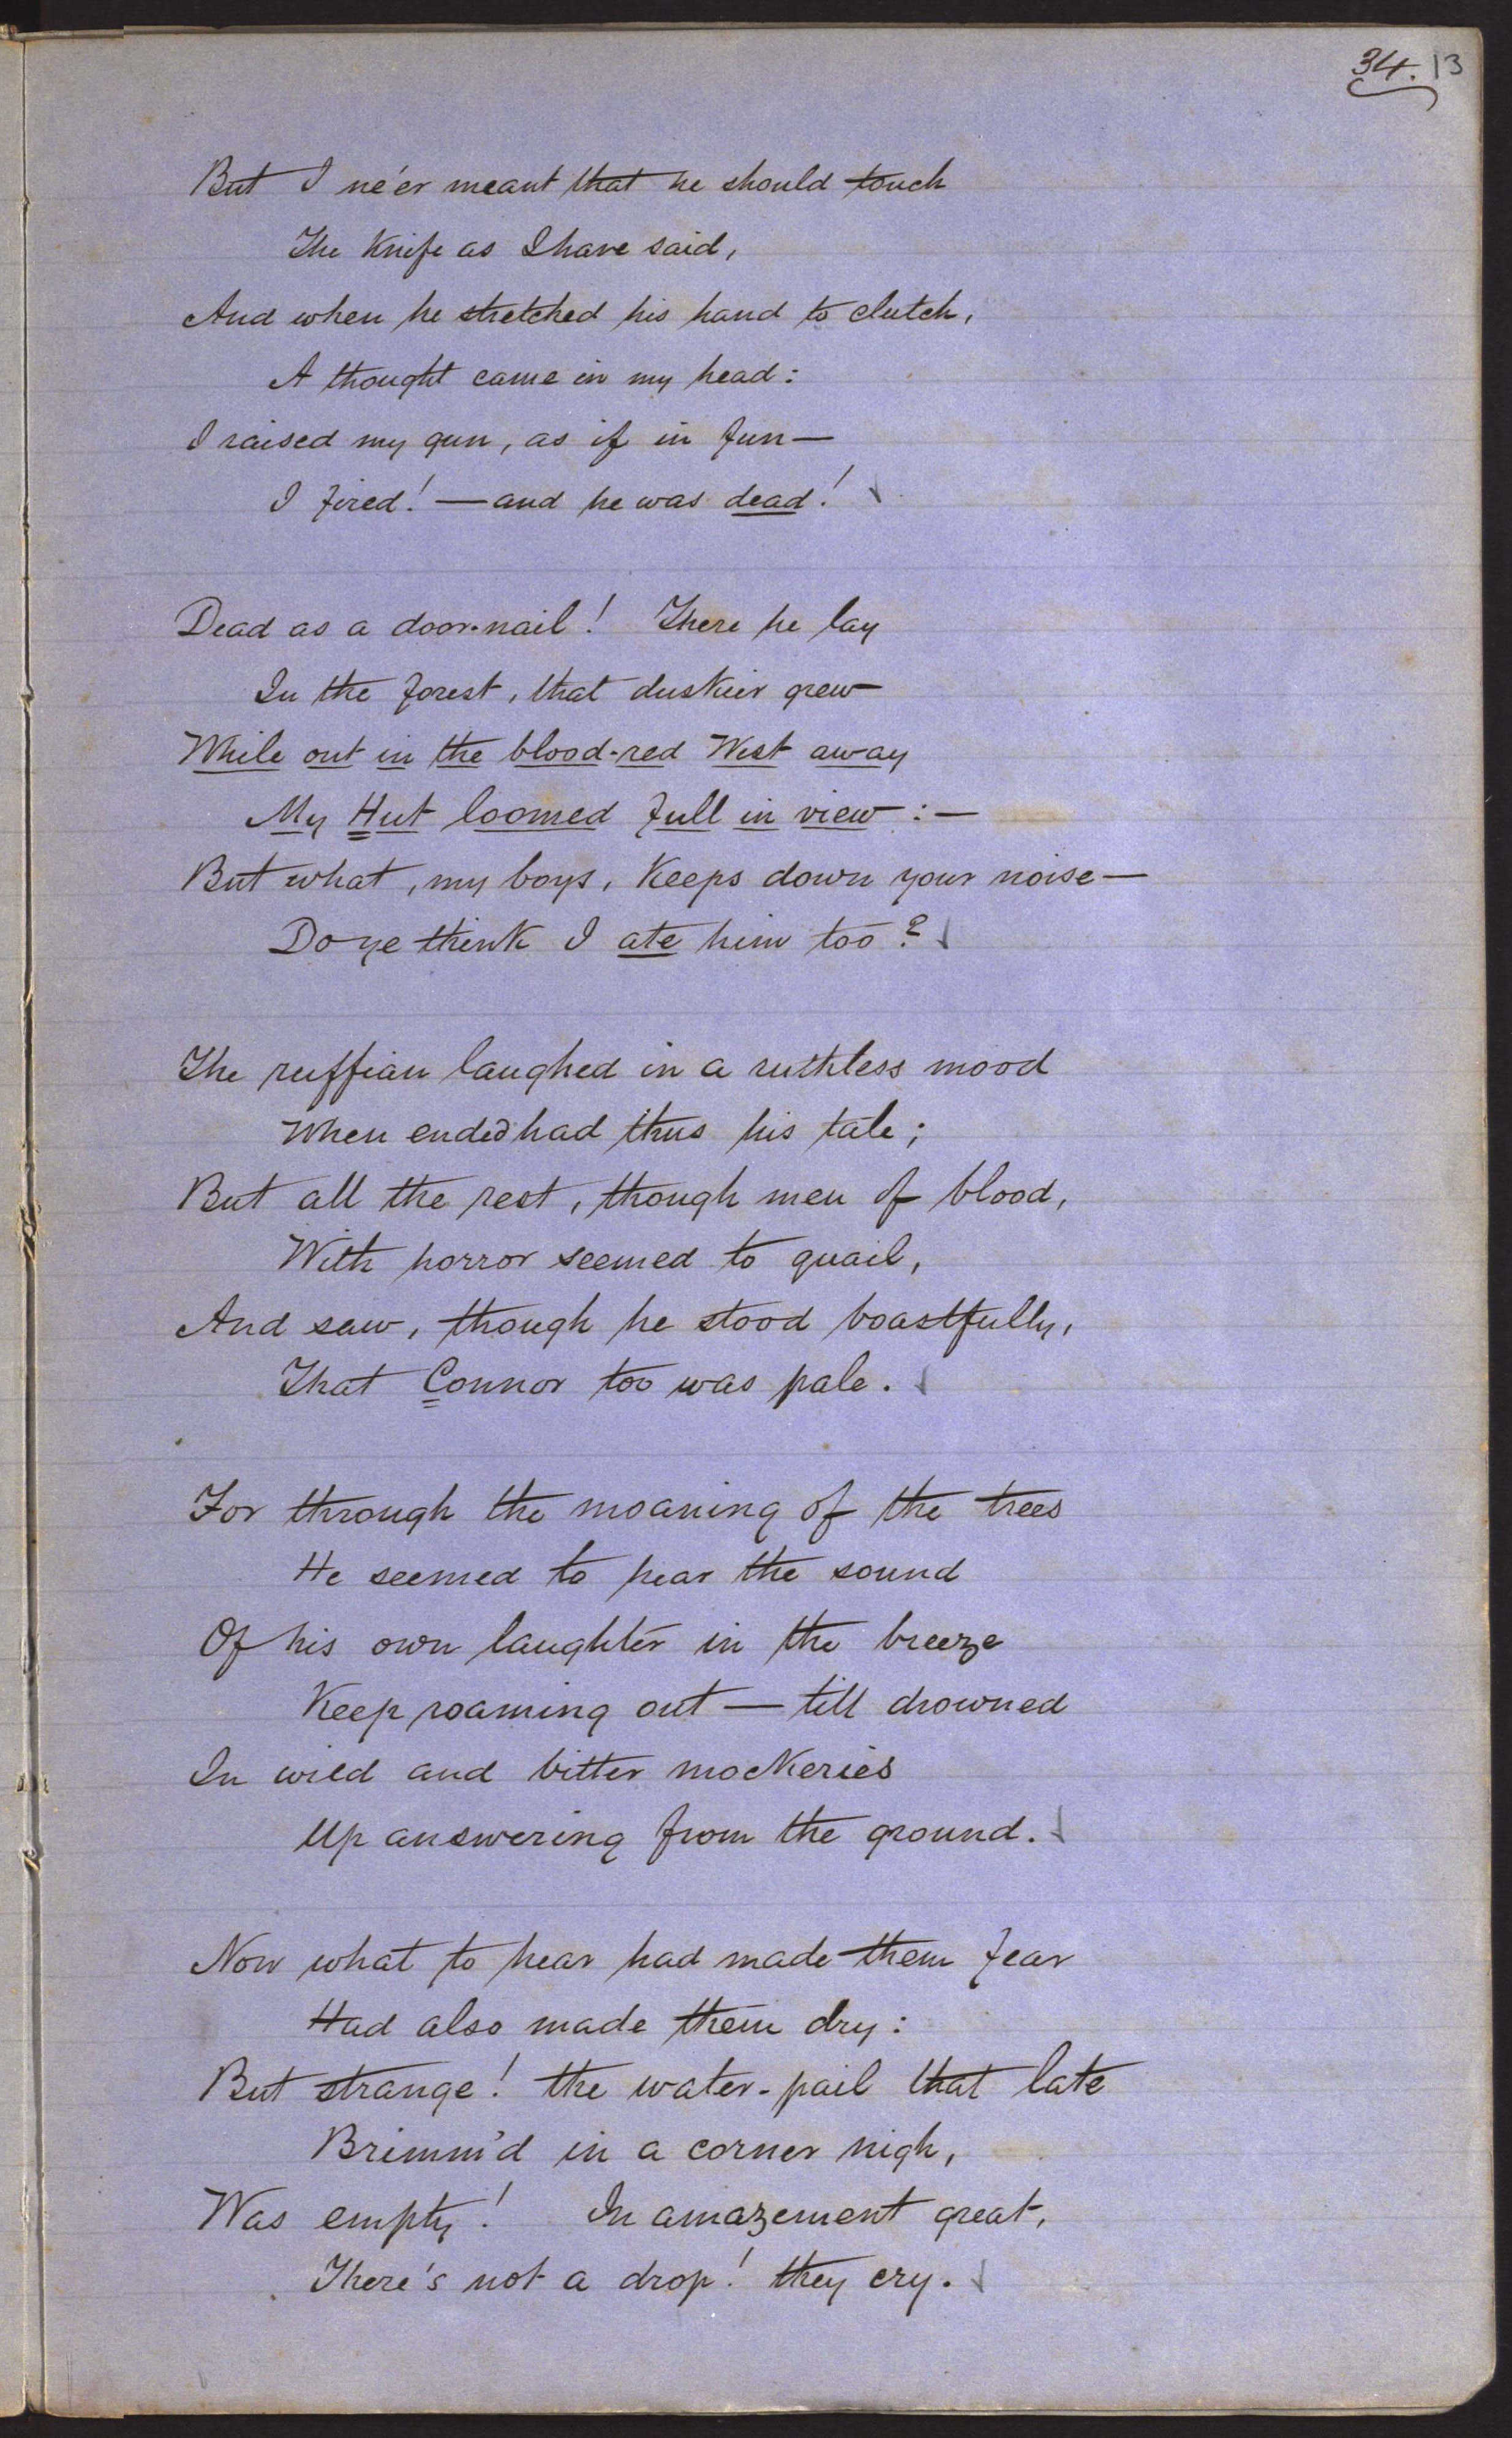 34. 13
But I ne'er meant that he should touch
The Knife as I have said,
And when he stretched his hand to clutch,
A thought came in my head:
I raised my gun, as if in fun—
I fired! — and he was dead!
Dead as a door-nail! There he lay
In the forest, that duskier grew
While out in the blood-red West away
My Hut loomed full in view :—
But what, my boys, Keeps down your noise—
Do ye think I ate him too?
The ruffian laughed in a ruthless mood
When ended had thus his tale;
But all the rest, though men of blood,
With horror seemed to quail,
And saw, though he stood boastfully,
That Connor too was pale.
For through the moaning of the trees
He seemed to hear the sound
Of his own laughter in the breeze
Keep roaming out — till drowned
In wild and bitter mockeries
Up answering from the ground.
Now what to hear had made them fear
Had also made them dry:
But strange! the water-pail that late
Brimm'd in a corner nigh,
Was empty! In amazement great,
There's not a drop! they cry.